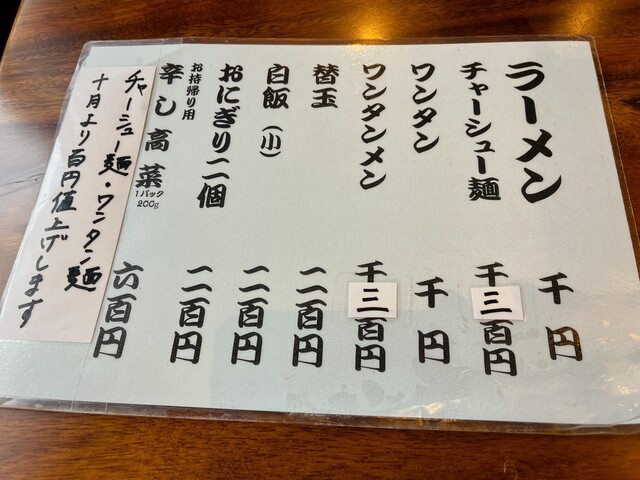 ラーメン 千円
チャーシュー麺 千三百円
ワンタン 千円
ワンタンメン 千三百円
替玉 二百円
白飯（小） 二百円
おにぎり二個 二百円
お持帰り用
辛し高菜 1パック 200g 六百円
チャーシュー麺・ワンタン麺
十月より百円値上げします